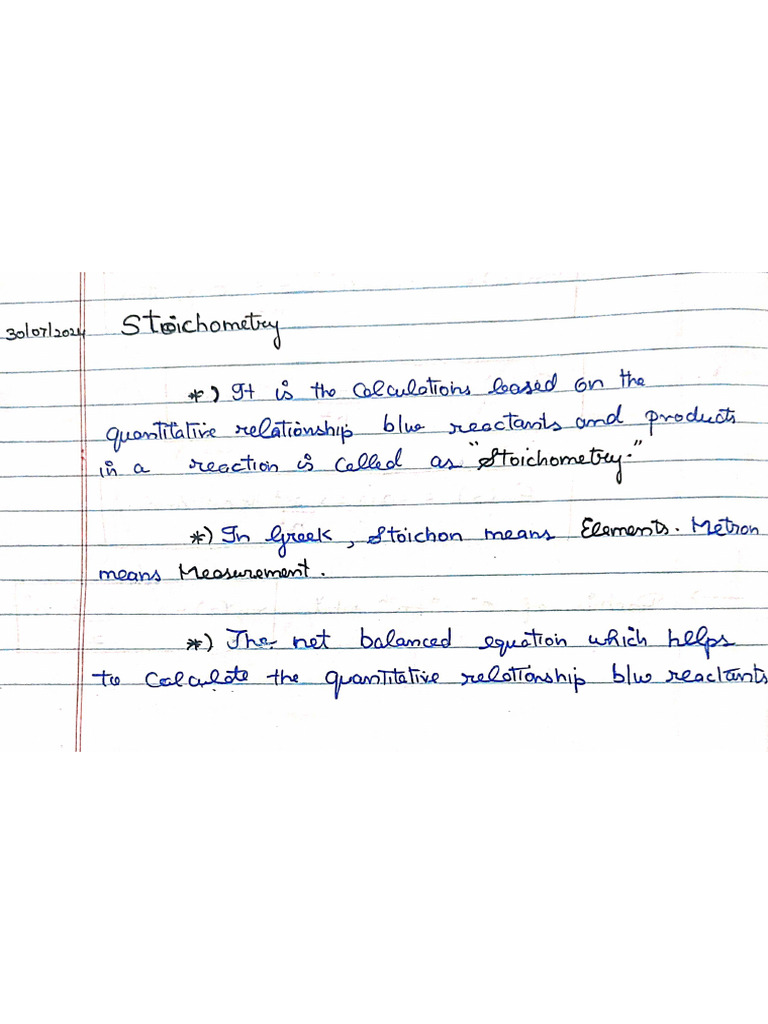 30/07/2024 Stoichometry
*) It is the Calculations based on the
quantitative relationship b/w reactants and products
in a reaction is called as "Stoichometry."
*) In Greek, Stoichon means Elements. Metron
means Measurement.
*) The net balanced equation which helps
to Calculate the quantitative relationship b/w reactants